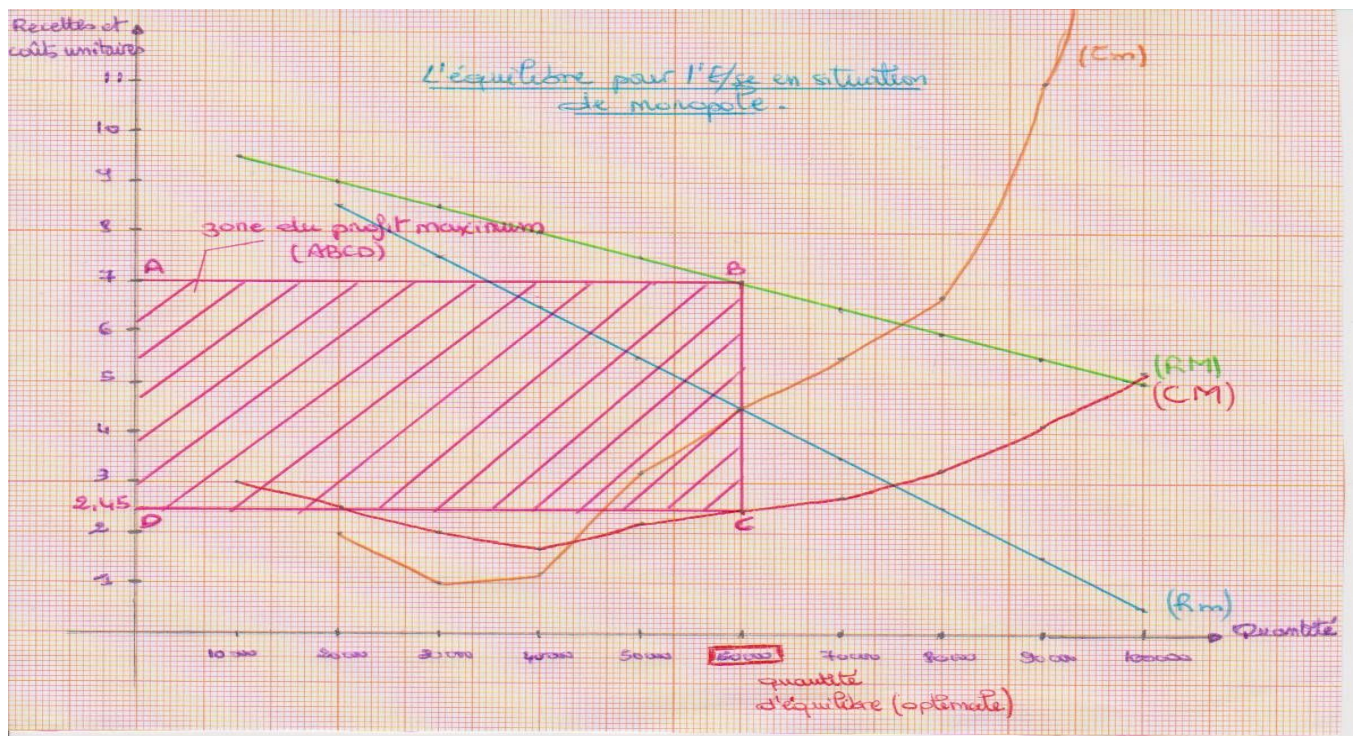 Recettes et
coûts unitaires
L'équilibre pour l'E/se en situation
de monopole.
(Cm)
11
10
9
8
7
6
5
4
3
2,45
2
1
zone du profit maximum
(ABCD)
A
B
C
D
(RM)
(CM)
(Rm)
Quantité
10 000
20 000
30 000
40 000
50 000
60 000
70 000
80 000
90 000
100 000
quantité
d'équilibre (optimale)